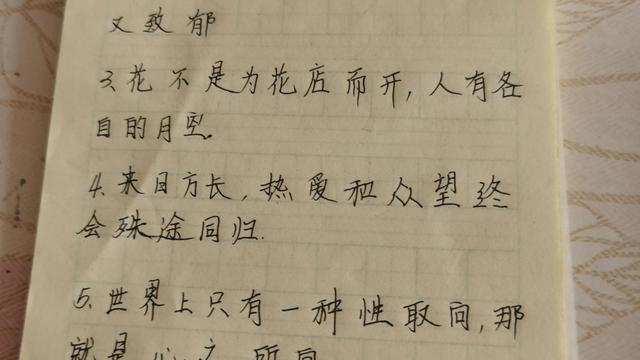 又致郁
3、花不是为花店而开,人有各
自的月亮。
4、来日方长,热爱和众望终
会殊途同归.
5、世界上只有一种性取向,那
就是心之所向